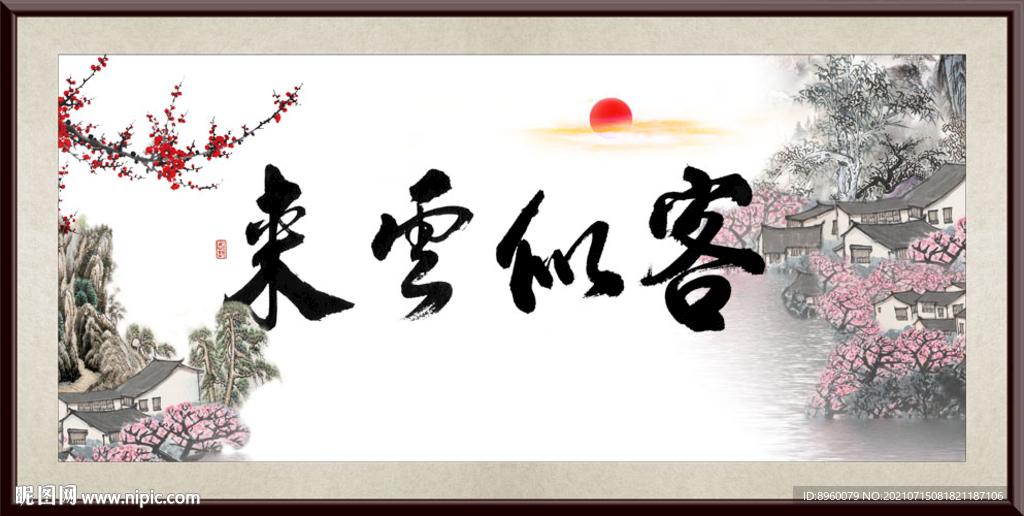 客似雲來
昵图网 www.nipic.com
ID:8960079 NO:20210715081821187106